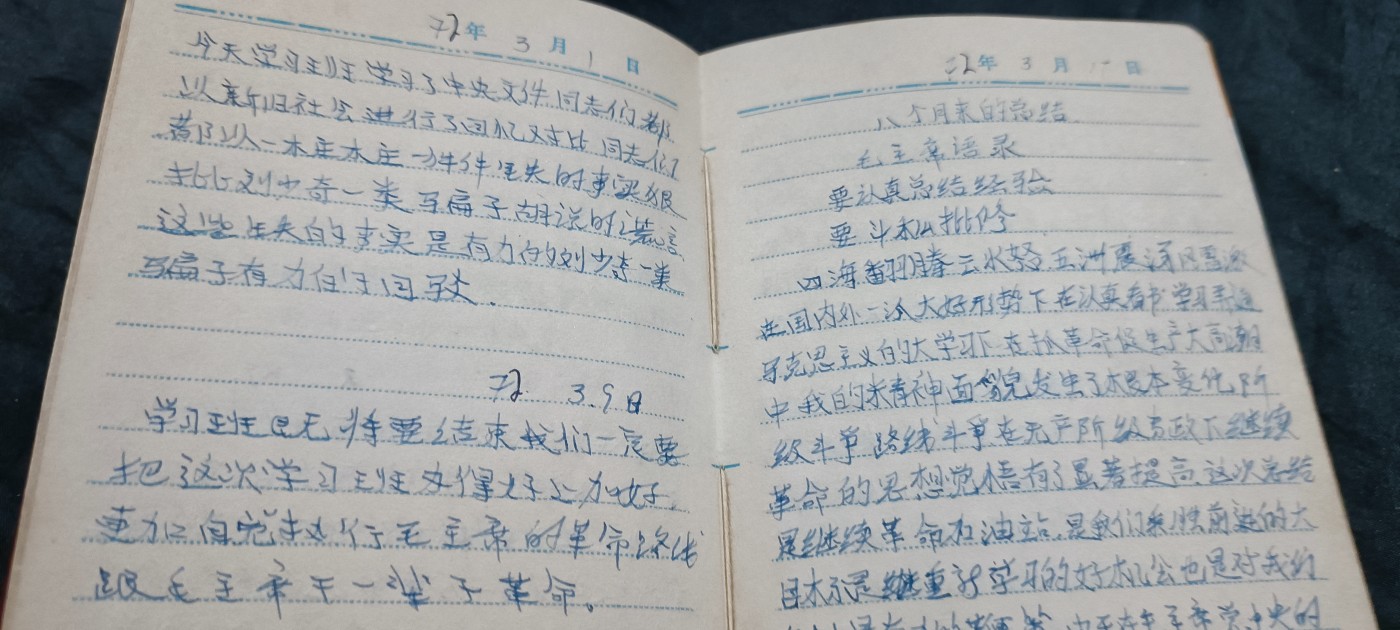 72年 3月 1日
今天学习班学习了中央文件同志们都
以新旧社会进行了回忆对比同志们
都以一本本一件件的事实狠
批刘少奇一类骗子胡说的谎言
这些的事实是有力的刘少奇一类
骗子有力的回
72 3.9日
学习班已将要结束我们一定要
把这次学习班办得好上加好
更加自觉执行毛主席的革命路线
跟毛主席干一辈子革命。
72年 3月 日
八个月来的总结
毛主席语录
要认真总结经验
要斗私批修
四海翻腾云水怒五洲震荡风雷激
在国内外一派大好形势下在认真看书学习弄通
马克思主义的大学习下在抓革命促生产大高潮
中我的精神面貌发生了根本变化阶
级斗争路线斗争在无产阶级专政下继续
革命的思想觉悟有了显著提高这次总结
是继续革命加油站,是我们乘胜前进的大
目标是重新学习的好机会也是对我们